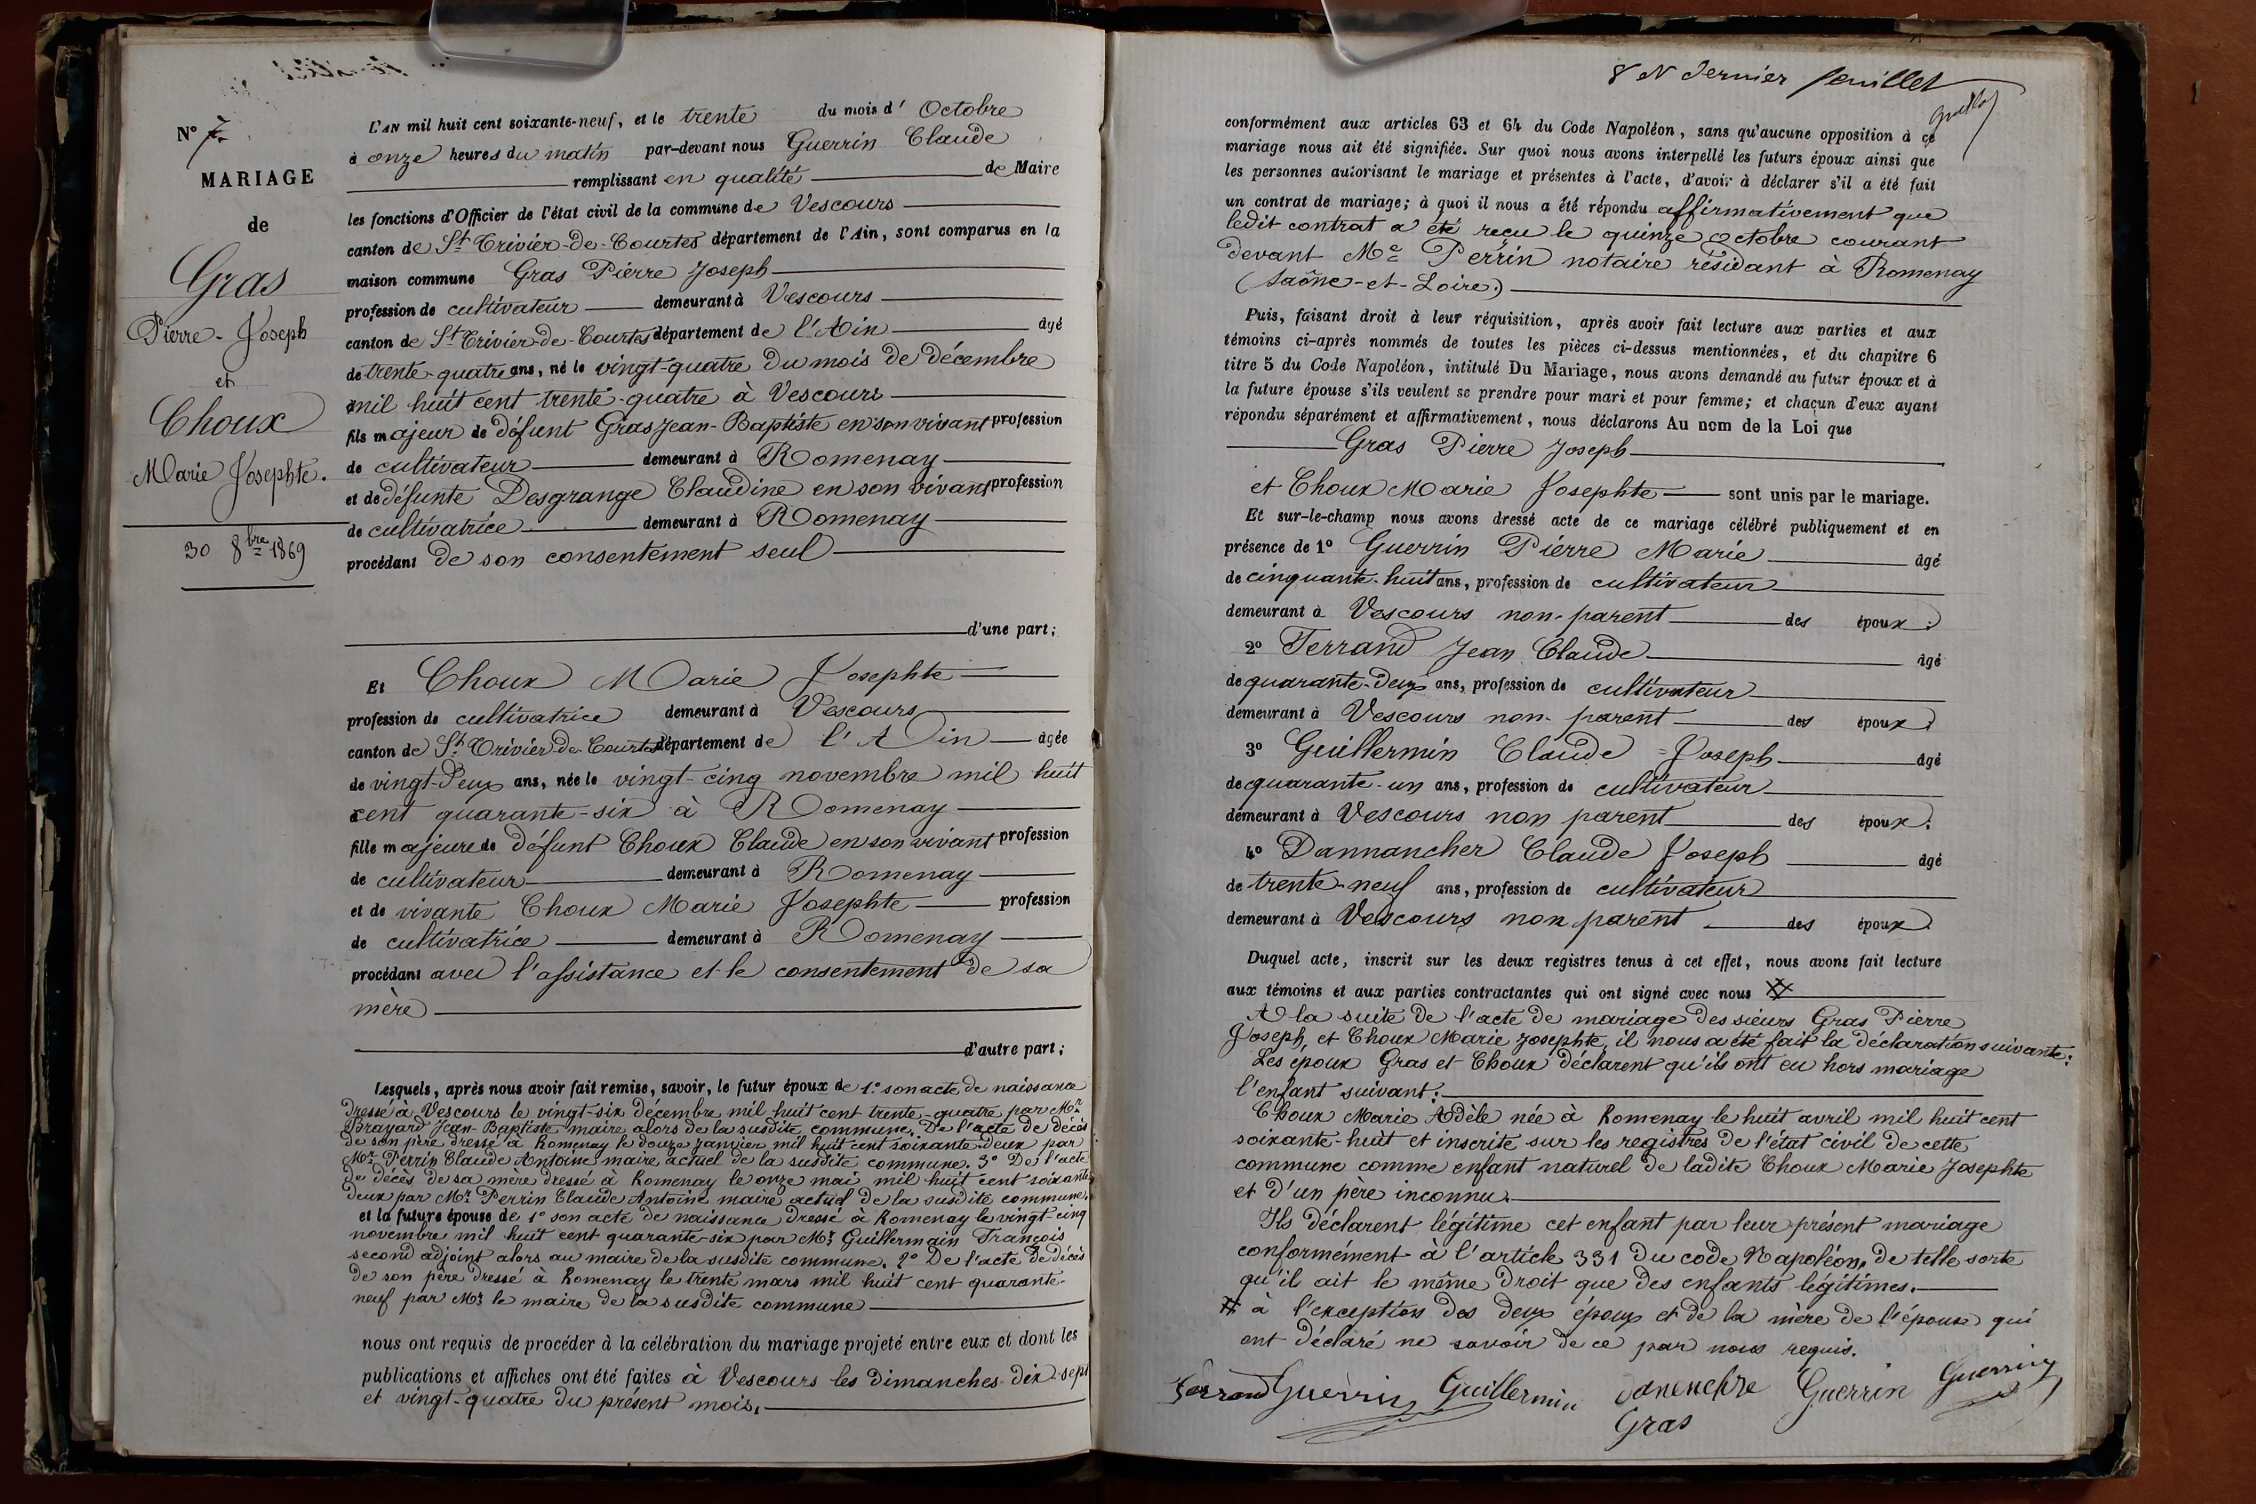 N° 7
MARIAGE
de
Gras
Pierre-Joseph
et
Choux
Marie Josephte.
30 8bre 1869
L'AN mil huit cent soixante-neuf, et le trente du mois d' Octobre
à onze heures du matin par-devant nous Guerrin Claude
remplissant en qualité de Maire
les fonctions d'Officier de l'état civil de la commune de Vescours
canton de St Trivier-de-Courtes département de l'Ain, sont comparus en la
maison commune Gras Pierre Joseph
profession de cultivateur demeurant à Vescours
canton de St Trivier-de-Courtes département de l'Ain âgé
de trente-quatre ans, né le vingt-quatre du mois de décembre
mil huit cent trente-quatre à Vescours
fils majeur de défunt Gras Jean-Baptiste en son vivant profession
de cultivateur demeurant à Romenay
et de défunte Desgrange Claudine en son vivant profession
de cultivatrice demeurant à Romenay
procédant de son consentement seul
d'une part;
Et Choux Marie Josephte
profession de cultivatrice demeurant à Vescours
canton de St Trivier-de-Courtes département de l'Ain âgée
de vingt-deux ans, née le vingt-cinq novembre mil huit
cent quarante-six à Romenay
fille majeure de défunt Choux Claude en son vivant profession
de cultivateur demeurant à Romenay
et de vivante Choux Marie Josephte profession
de cultivatrice demeurant à Romenay
procédant avec l'assistance et le consentement de sa
mère
d'autre part;
Lesquels, après nous avoir fait remise, savoir, le futur époux de 1° son acte de naissance
dressé à Vescours le vingt-six décembre mil huit cent trente-quatre par Mr
Brayard Jean-Baptiste maire alors de la susdite commune. De l'acte de décès
de son père dressé à Romenay le douze janvier mil huit cent soixante-deux par
Mr Perrin Claude Antoine maire actuel de la susdite commune. 3° De l'acte
de décès de sa mère dressé à Romenay le onze mai mil huit cent soixante
deux par Mr Perrin Claude Antoine maire actuel de la susdite commune.
et la future épouse de 1° son acte de naissance dressé à Romenay le vingt-cinq
novembre mil huit cent quarante-six par Mr Guillermain François
second adjoint alors au maire de la susdite commune. 2° De l'acte de décès
de son père dressé à Romenay le trente mars mil huit cent quarante-
neuf par Mr le maire de la susdite commune
nous ont requis de procéder à la célébration du mariage projeté entre eux et dont les
publications et affiches ont été faites à Vescours les dimanches dix-sept
et vingt-quatre du présent mois,
8 N dernier feuillet
conformément aux articles 63 et 64 du Code Napoléon, sans qu'aucune opposition à ce
mariage nous ait été signifiée. Sur quoi nous avons interpellé les futurs époux ainsi que
les personnes autorisant le mariage et présentes à l'acte, d'avoir à déclarer s'il a été fait
un contrat de mariage; à quoi il nous a été répondu affirmativement que
ledit contrat a été reçu le quinze octobre courant
devant Me Perrin notaire résidant à Romenay
(Saône-et-Loire.)
Puis, faisant droit à leur réquisition, après avoir fait lecture aux parties et aux
témoins ci-après nommés de toutes les pièces ci-dessus mentionnées, et du chapitre 6
titre 5 du Code Napoléon, intitulé Du Mariage, nous avons demandé au futur époux et à
la future épouse s'ils veulent se prendre pour mari et pour femme; et chacun d'eux ayant
répondu séparément et affirmativement, nous déclarons Au nom de la Loi que
Gras Pierre Joseph
et Choux Marie Josephte sont unis par le mariage.
Et sur-le-champ nous avons dressé acte de ce mariage célébré publiquement et en
présence de 1° Guerrin Pierre Marie âgé
de cinquante-huit ans, profession de cultivateur
demeurant à Vescours non-parent des époux;
2° Ferrand Jean Claude âgé
de quarante-deux ans, profession de cultivateur
demeurant à Vescours non-parent des époux;
3° Guillermin Claude-Joseph âgé
de quarante-un ans, profession de cultivateur
demeurant à Vescours non parent des époux;
4° Dannancher Claude Joseph âgé
de trente-neuf ans, profession de cultivateur
demeurant à Vescours non parent des époux
Duquel acte, inscrit sur les deux registres tenus à cet effet, nous avons fait lecture
aux témoins et aux parties contractantes qui ont signé avec nous #
A la suite de l'acte de mariage des sieurs Gras Pierre
Joseph, et Choux Marie Josephte, il nous a été fait la déclaration suivante:
Les époux Gras et Choux déclarent qu'ils ont eu hors mariage
l'enfant suivant:
Choux Marie Adèle née à Romenay le huit avril mil huit cent
soixante-huit et inscrite sur les registres de l'état civil de cette
commune comme enfant naturel de ladite Choux Marie Josephte
et d'un père inconnu.
Ils déclarent légitime cet enfant par leur présent mariage
conformément à l'article 331 du code Napoléon, de telle sorte
qu'il ait le même droit que des enfants légitimes.
# à l'exception des deux époux et de la mère de l'épouse qui
ont déclaré ne savoir de ce par nous requis.
Ferrand Guerrin Guillermin Guerrin Guerrin
Gras